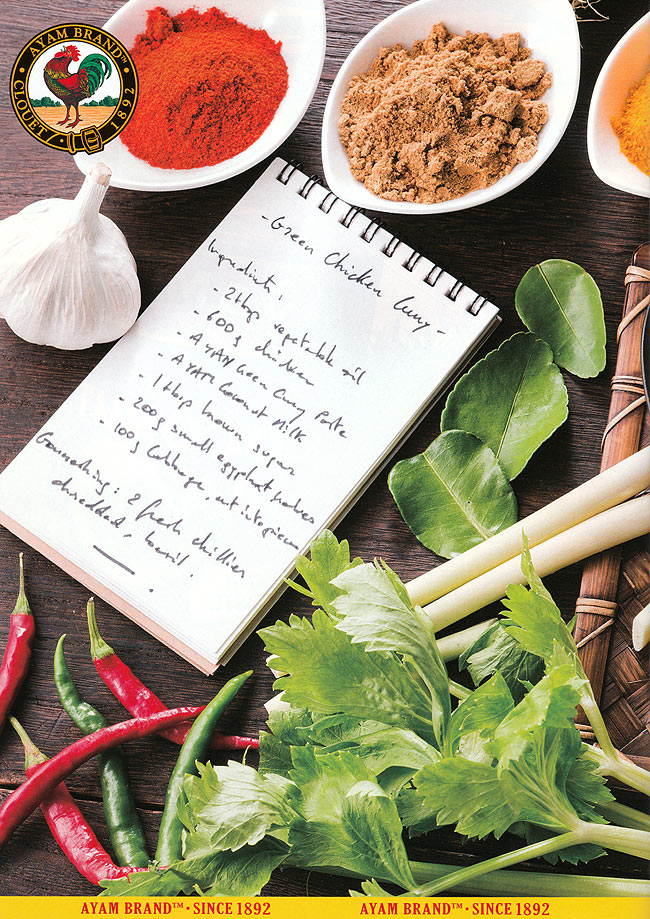 AYAM BRAND™
CLOUET
1892
- Green Chicken Curry -
Ingredients :
- 2 tbsp vegetable oil
- 600 g chicken
- AYAM Green Curry Paste
- AYAM Coconut Milk
- 1 tbsp brown sugar
- 200g small eggplant halves
- 100g Cabbage, cut into pieces
Garnishing : 2 fresh chillies
shredded, basil.
AYAM BRAND™ • SINCE 1892 AYAM BRAND™ • SINCE 1892